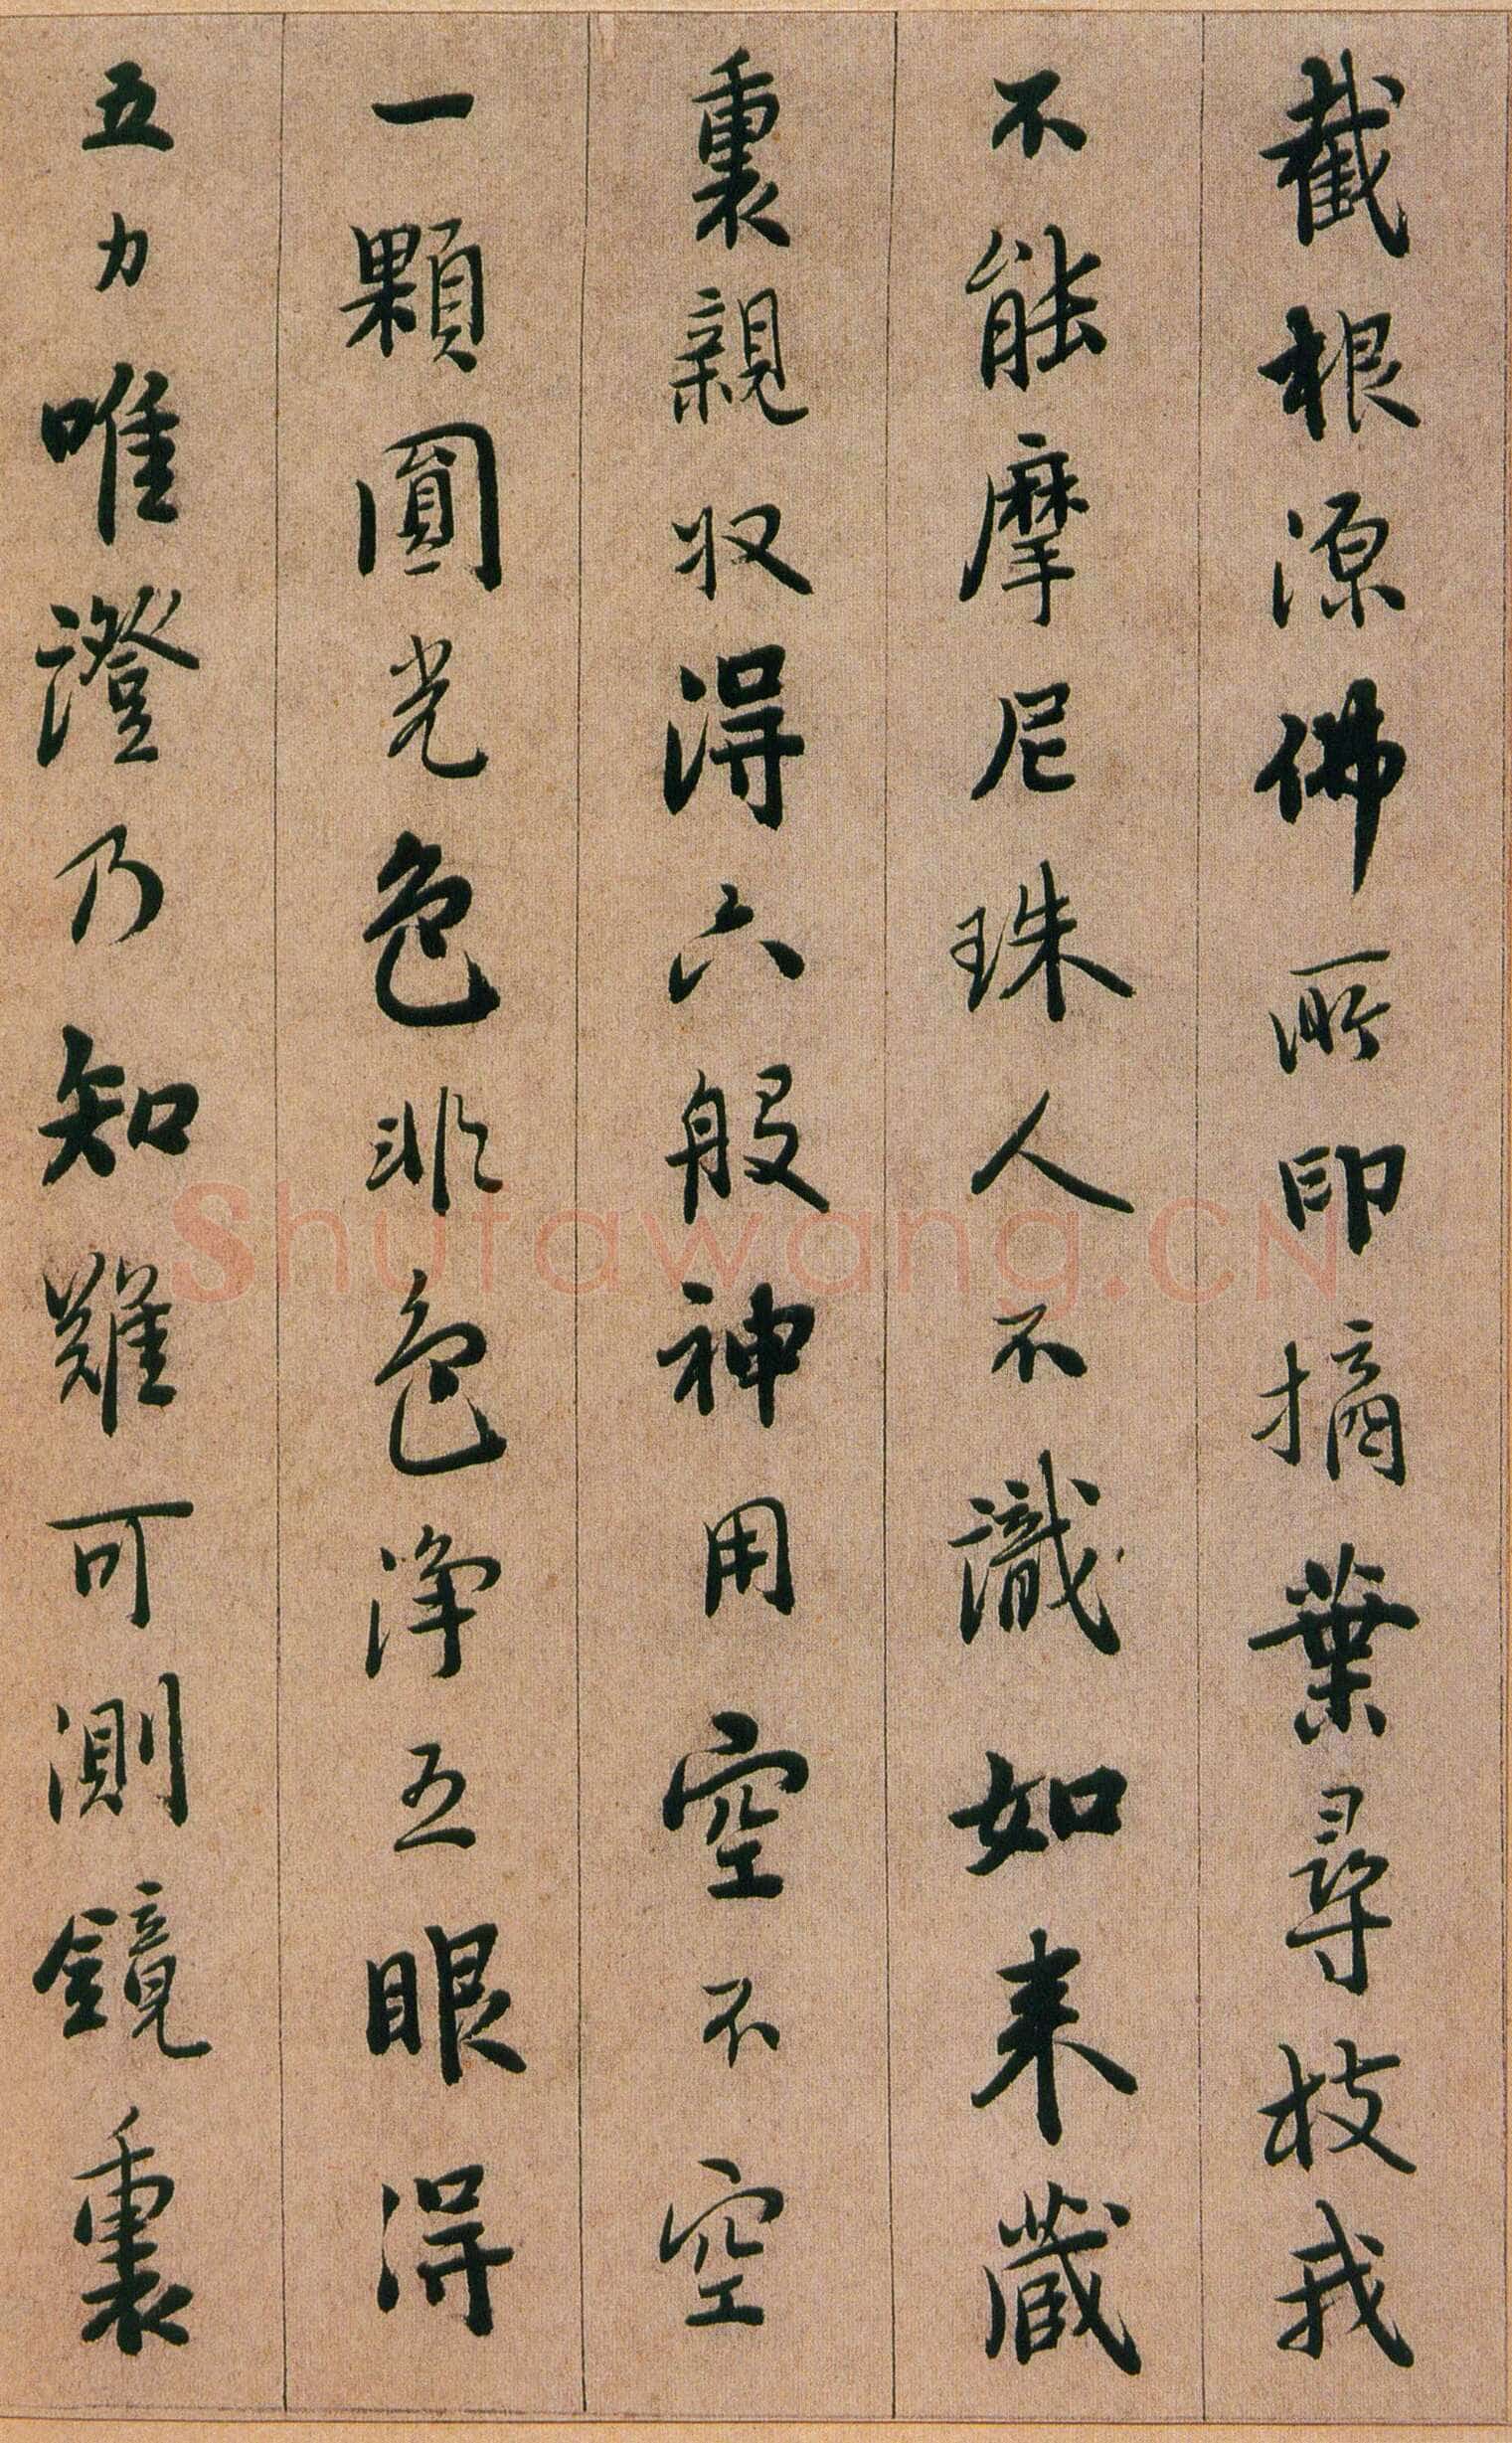 截根源佛所印摘葉尋枝我
不能摩尼珠人不識如来藏
裏親収得六般神用空不空
一顆圓光色非色淨五眼得
五力唯證乃知難可測鏡裏
Shufawang.CN